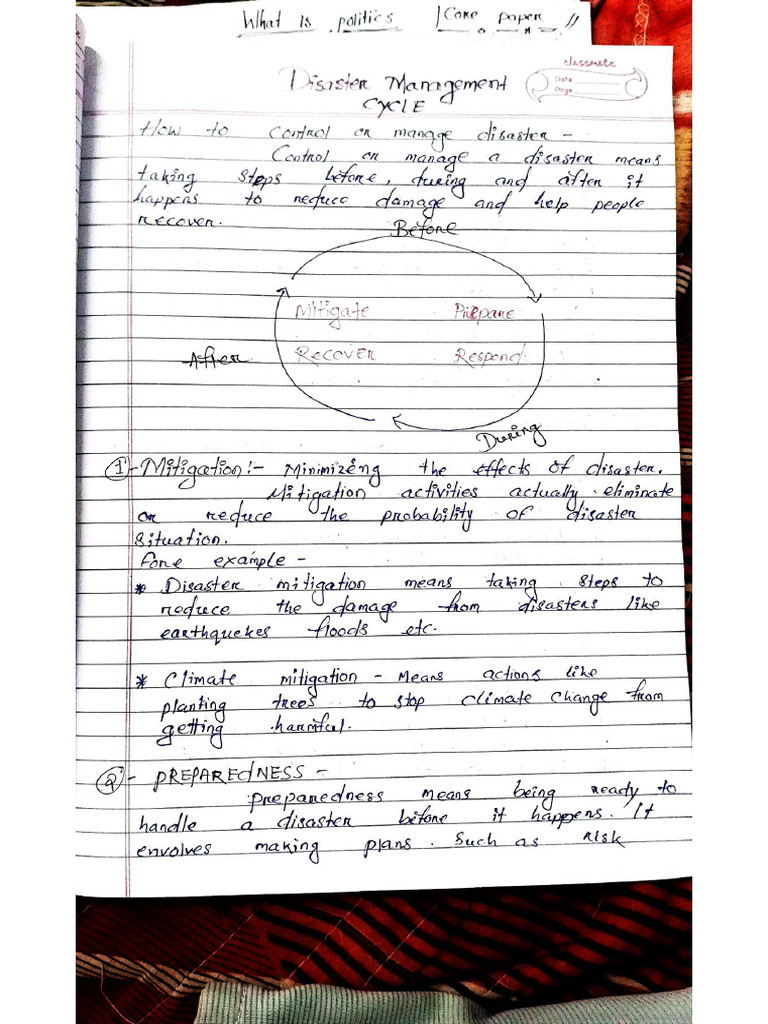 What is politics | Core paper !!
classmate
Date
Page
Disaster Management
CYCLE
How to control or manage disaster -
Control or manage a disaster means
taking steps before, during and after it
happens to reduce damage and help people
recover.
Before
Mitigate Prepare
After Recover Respond
During
① - Mitigation :- Minimizing the effects of disaster.
Mitigation activities actually eliminate
or reduce the probability of disaster
situation.
fore example -
* Disaster mitigation means taking steps to
reduce the damage from disasters like
earthquekes floods etc.
* Climate mitigation - Means actions like
planting trees to stop climate change from
getting harmful.
② - PREPAREDNESS -
preparedness means being ready to
handle a disaster before it happens. It
envolves making plans. Such as risk